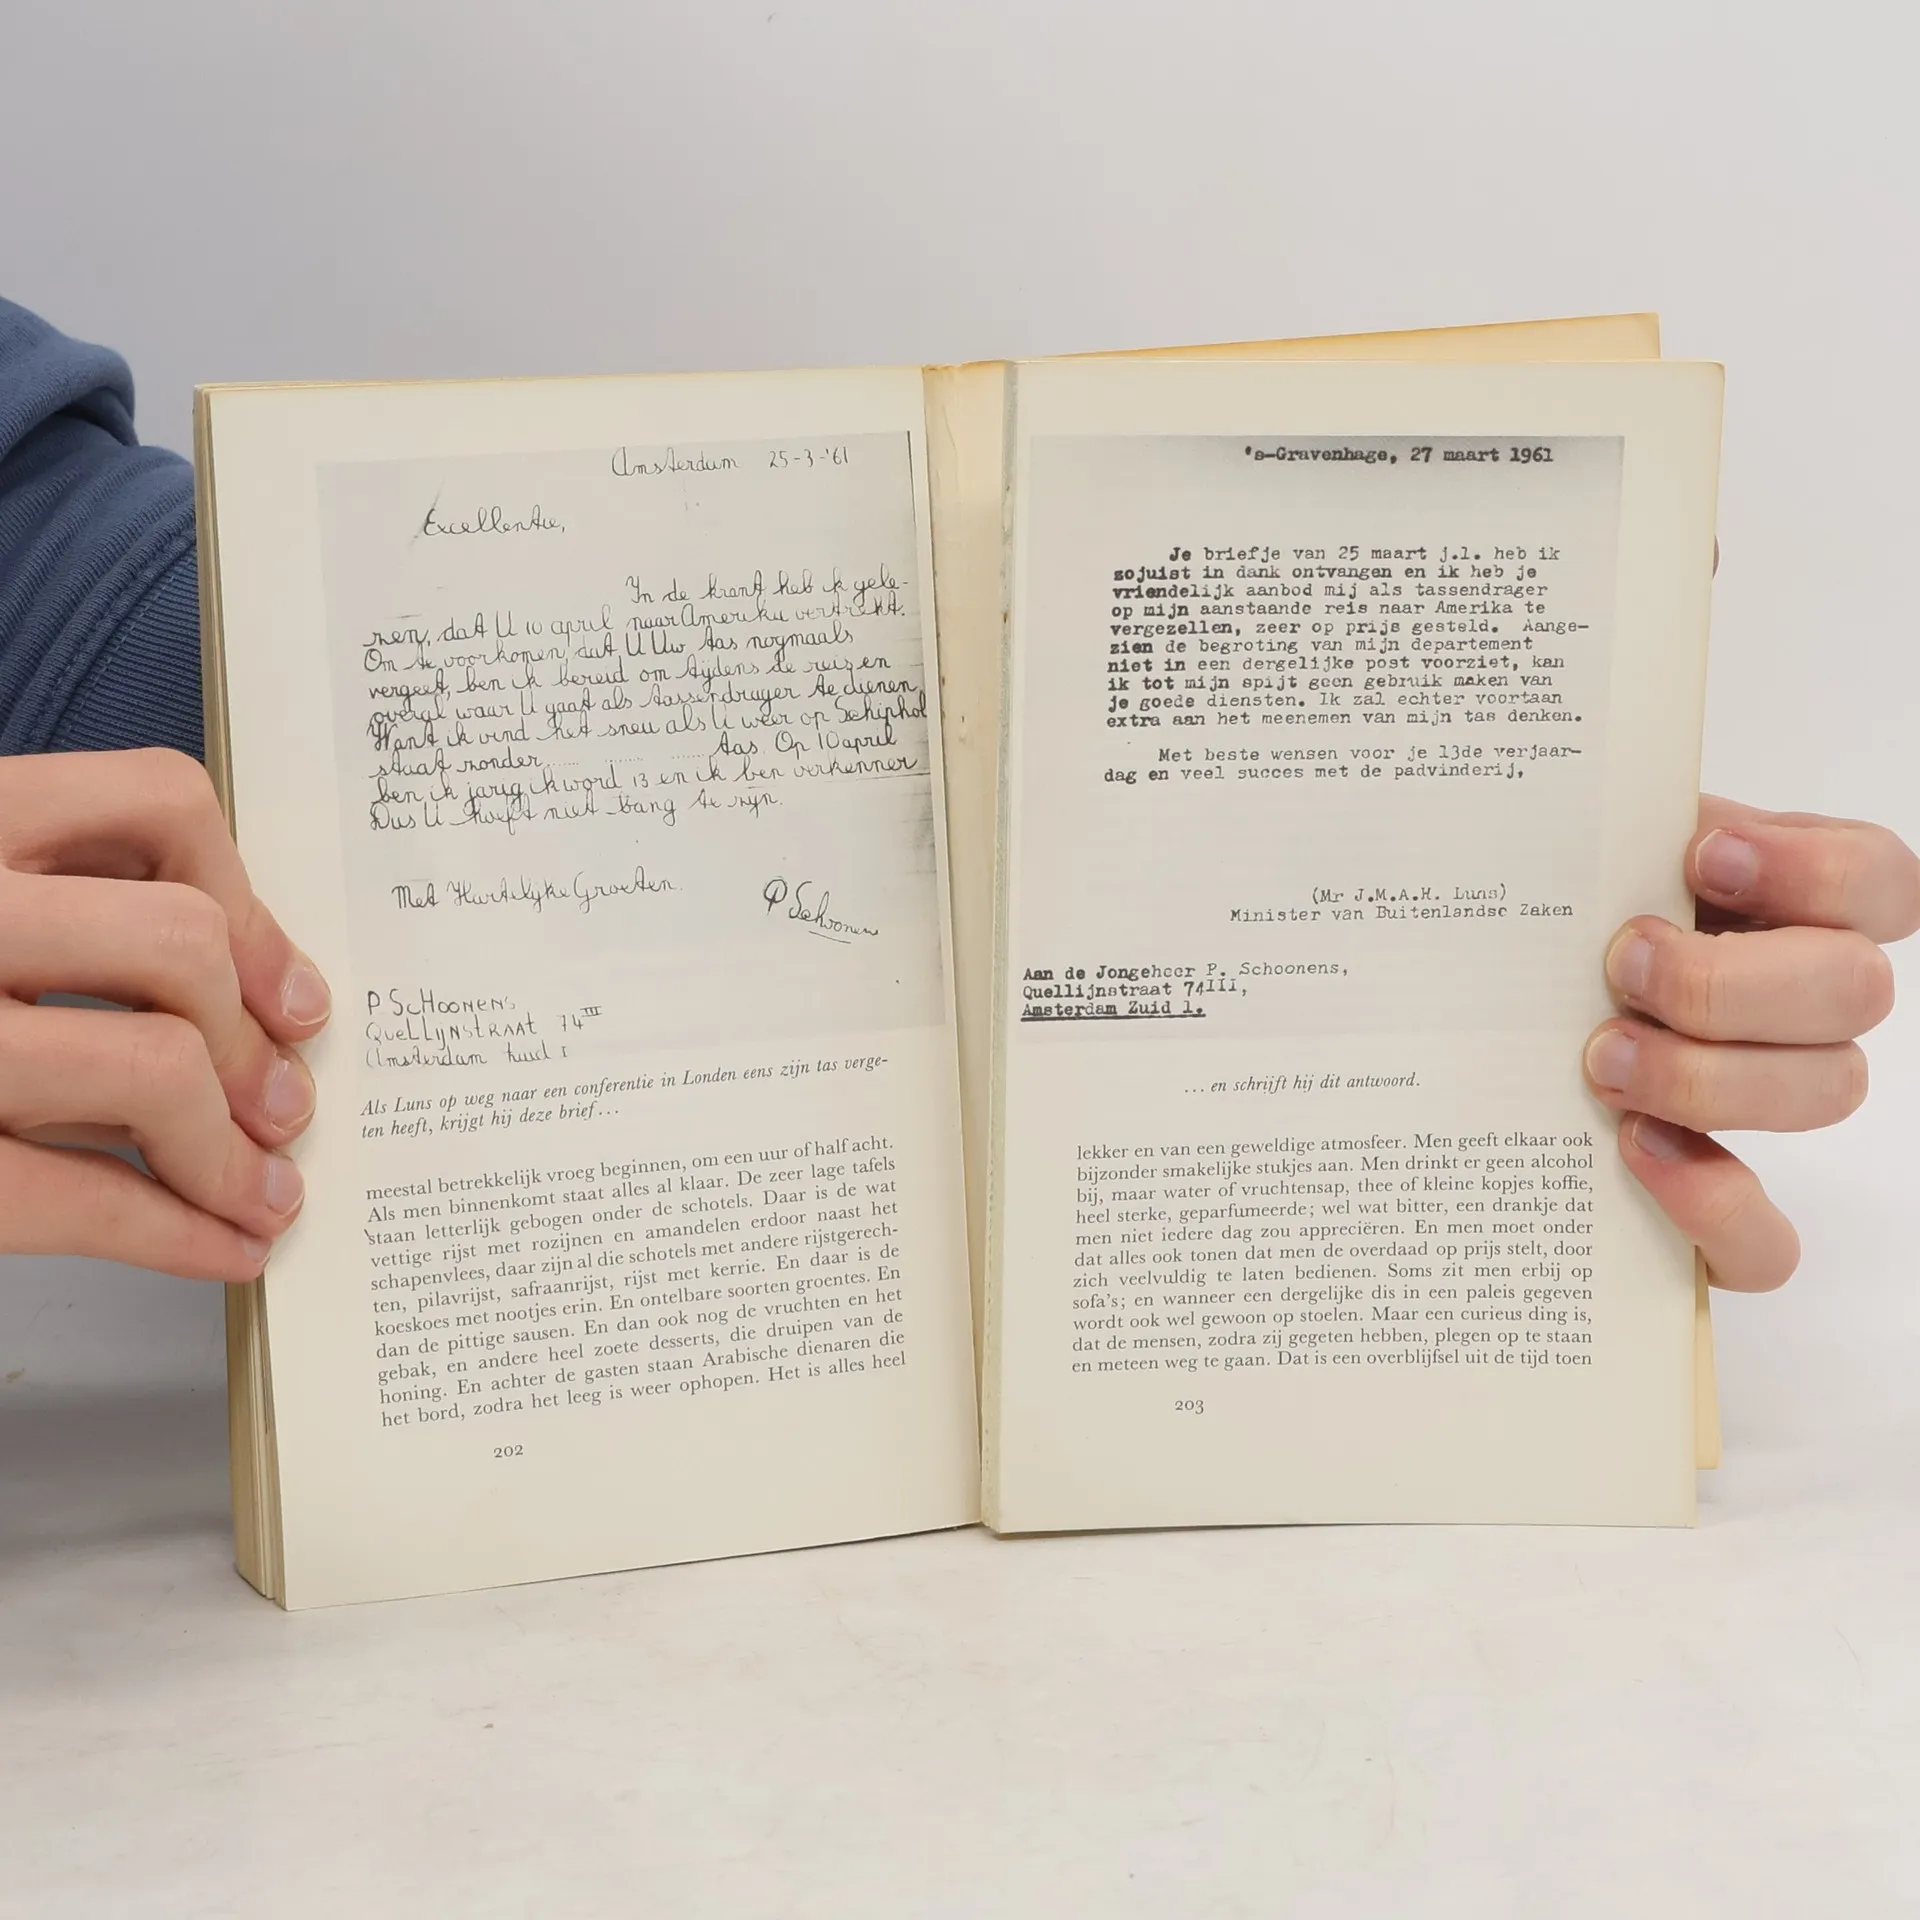 Amsterdam 25-3-'61
Excellentie,
In de krant heb ik gele-
zen, dat U 10 april naar Amerika vertrekt.
Om te voorkomen, dat U Uw tas nogmaals
vergeet, ben ik bereid om tijdens de reis en
overal waar U gaat als tassendrager te dienen,
Want ik vind het sneu als U weer op Schiphol
staat zonder ...... ...... ...... tas. Op 10 april
ben ik jarig ik word 13 en ik ben verkenner
Dus U hoeft niet bang te zijn.
Met Hartelijke Groeten.
P Schoonens
P SCHOONENS
QUELLIJNSTRAAT 74III
Amsterdam Zuid I
Als Luns op weg naar een conferentie in Londen eens zijn tas verge-
ten heeft, krijgt hij deze brief...
meestal betrekkelijk vroeg beginnen, om een uur of half acht.
Als men binnenkomt staat alles al klaar. De zeer lage tafels
staan letterlijk gebogen onder de schotels. Daar is de wat
vettige rijst met rozijnen en amandelen erdoor naast het
schapenvlees, daar zijn al die schotels met andere rijstgerech-
ten, pilavrijst, safraanrijst, rijst met kerrie. En daar is de
koeskoes met nootjes erin. En ontelbare soorten groentes. En
dan de pittige sausen. En dan ook nog de vruchten en het
gebak, en andere heel zoete desserts, die druipen van de
honing. En achter de gasten staan Arabische dienaren die
het bord, zodra het leeg is weer ophopen. Het is alles heel
202
's-Gravenhage, 27 maart 1961
Je briefje van 25 maart j.l. heb ik
zojuist in dank ontvangen en ik heb je
vriendelijk aanbod mij als tassendrager
op mijn aanstaande reis naar Amerika te
vergezellen, zeer op prijs gesteld. Aange-
zien de begroting van mijn departement
niet in een dergelijke post voorziet, kan
ik tot mijn spijt geen gebruik maken van
je goede diensten. Ik zal echter voortaan
extra aan het meenemen van mijn tas denken.
Met beste wensen voor je 13de verjaar-
dag en veel succes met de padvinderij,
(Mr J.M.A.H. Luns)
Minister van Buitenlandse Zaken
Aan de Jongeheer P. Schoonens,
Quellijnstraat 74III,
Amsterdam Zuid 1.
... en schrijft hij dit antwoord.
lekker en van een geweldige atmosfeer. Men geeft elkaar ook
bijzonder smakelijke stukjes aan. Men drinkt er geen alcohol
bij, maar water of vruchtensap, thee of kleine kopjes koffie,
heel sterke, geparfumeerde; wel wat bitter, een drankje dat
men niet iedere dag zou appreciëren. En men moet onder
dat alles ook tonen dat men de overdaad op prijs stelt, door
zich veelvuldig te laten bedienen. Soms zit men erbij op
sofa's; en wanneer een dergelijke dis in een paleis gegeven
wordt ook wel gewoon op stoelen. Maar een curieus ding is,
dat de mensen, zodra zij gegeten hebben, plegen op te staan
en meteen weg te gaan. Dat is een overblijfsel uit de tijd toen
203